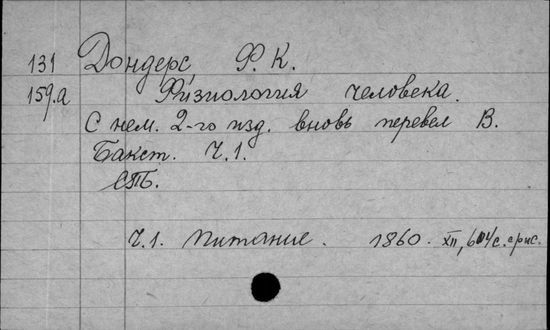 131 Дондерс Ф. К.
159.а Физиология человека.
С нем. 2-го изд. вновь перевел В.
Бакст. Ч.1.
СПБ.
Ч.1. Питание. 1860. XII, 604 с. с рис.